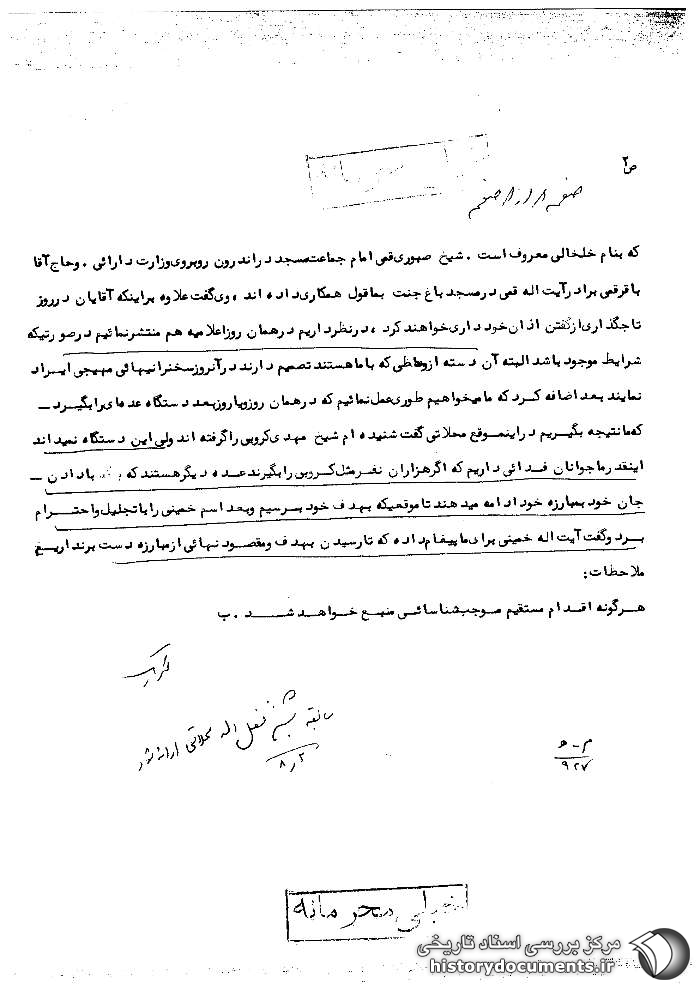 ص ۲
که بنام خلخالی معروف است . شیخ صبوری قمی امام جماعت مسجد در اندرون روبروی وزارت دارائی . وحاج آقا
باقر قمی برادر آیت اله قمی در مسجد باغ جنت بما قول همکاری داده اند ، وی گفت علاوه براینکه آقایان در روز
تاجگذاری از گفتن اذان خودداری خواهند کرد ، در نظر داریم در همان روز اعلامیه هم منتشر نمائیم در صورتیکه
شرایط موجود باشد البته آن دسته از وعاظی که با ما هستند تصمیم دارند در آنروز سخنرانیهائی مهیجی ایراد
نمایند بعد اضافه کرد که ما میخواهیم طوری عمل نمائیم که در همان روز و یا روز بعد دستگاه عده‌ای را بگیرد –
که ما نتیجه بگیریم در اینموقع محلاتی گفت شنیده ام شیخ مهدی کروبی را گرفته اند ولی این دستگاه نمیداند
اینقدر ما جوانان فدائی داریم که اگر هزاران نفر مثل کروبی را بگیرند عده دیگر هستند که با دادن –
جان خود بمبارزه خود ادامه میدهند تا موقعیکه بهدف خود برسیم و بعد اسم خمینی را با تجلیل و احترام
برد و گفت آیت اله خمینی برای ما پیغام داده که تا رسیدن بهدف و مقصود نهائی از مبارزه دست برنداریم
ملاحظات :
هرگونه اقدام مستقیم موجب شناسائی منبع خواهد شد . ب
سابقه شیخ فضل اله محلاتی ارائه شود
۸/۲
م - و
۹۲۷
خیلی محرمانه
مرکز بررسی اسناد تاریخی
historydocuments.ir